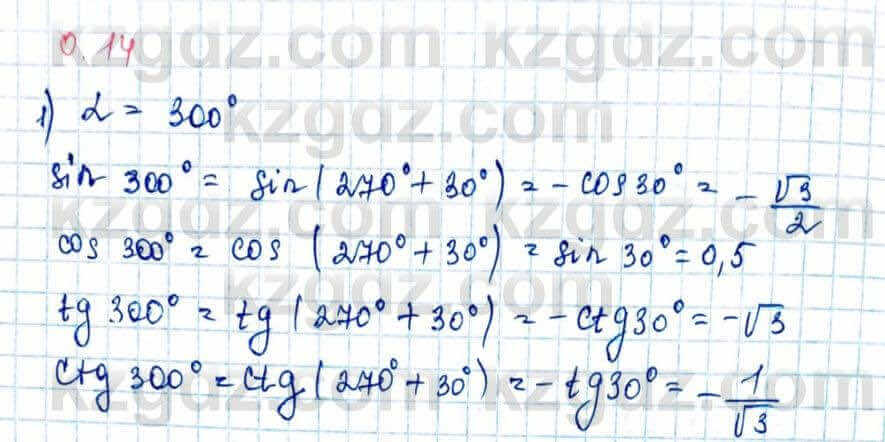 0.14
1) α = 300°
sin 300° = sin(270° + 30°) = -cos 30° = -√3/2
cos 300° = cos (270° + 30°) = sin 30° = 0,5
tg 300° = tg (270° + 30°) = -ctg 30° = -√3
ctg 300° = ctg (270° + 30°) = -tg 30° = -1/√3
kzgdz.com kzgdz.com
kzgdz.com
kzgdz.com kzgdz.com
kzgdz.com
kzgdz.com kzgdz.com